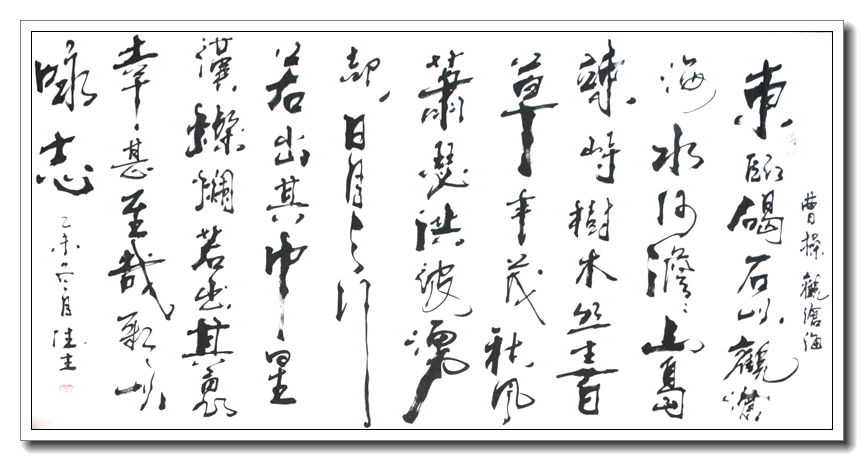 曹操觀滄海
東臨碣石以觀滄
海水何澹〻山島
竦峙樹木丛生百
草丰茂秋風
蕭瑟洪波湧
起日月之行
若出其中星
漢燦爛若出其裏
幸甚至哉歌以
詠志
乙未冬月